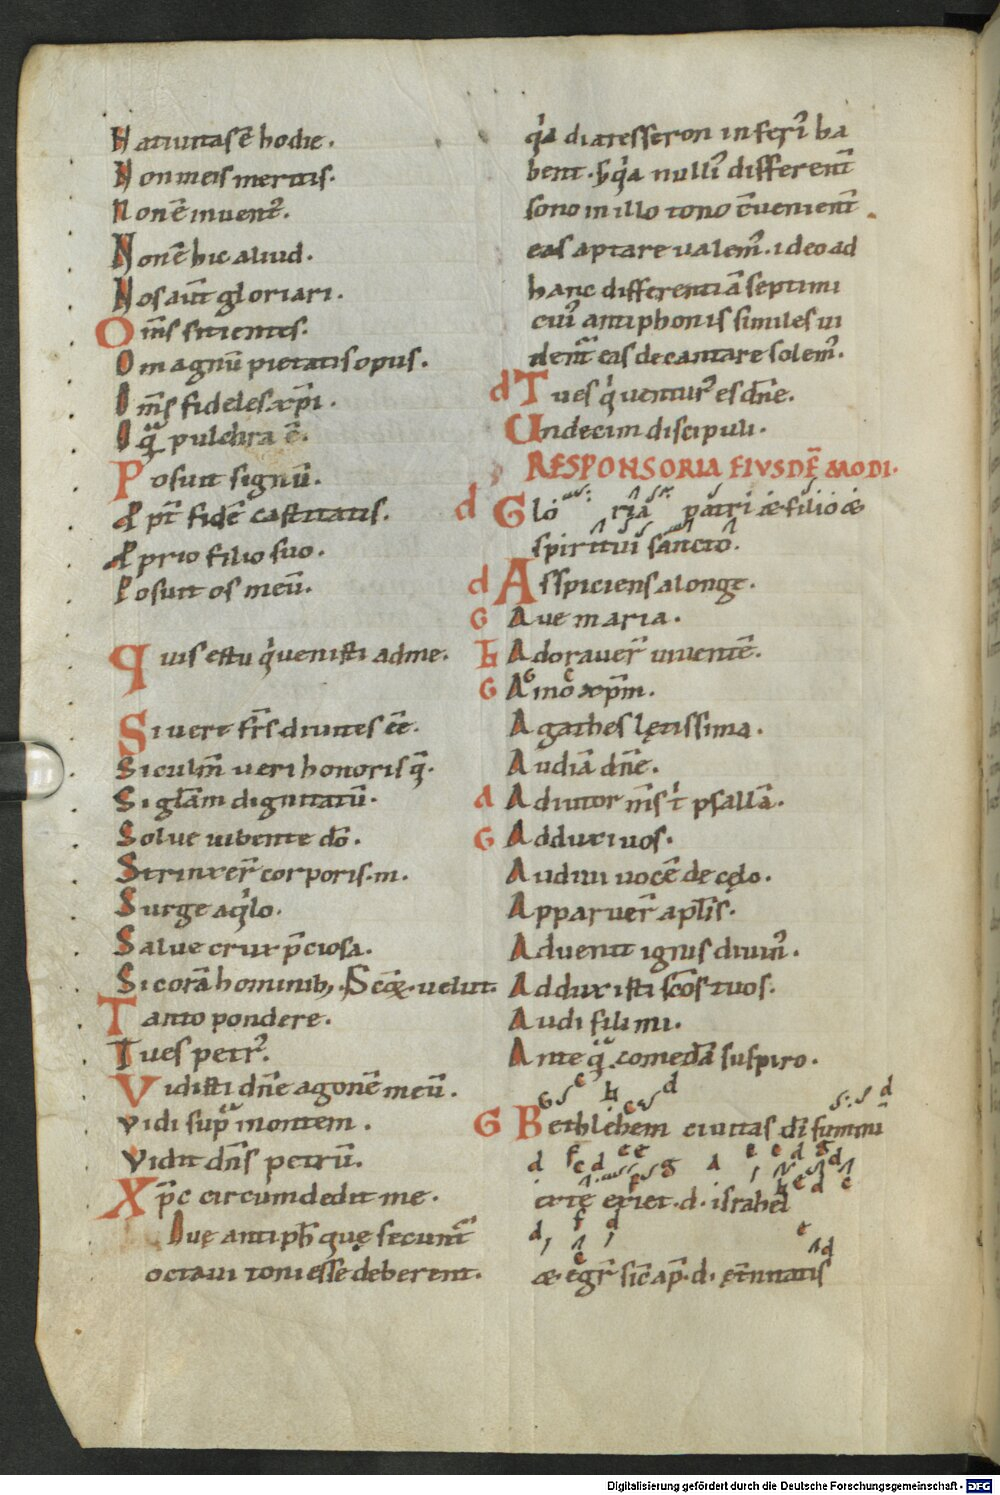 Natiuitas ē hodie.
Non meis meritis.
Non ē inuent᷒.
Non ē hic aliud.
Nos aūt gloriari.
Om̄s sitientes.
O magnū pietatis opus.
Om̄s fideles xp̄i.
O quā pulchra ē.
Posuit signū.
Ꝓpt̄ fidē castitatis.
Ꝓprio filio suo.
Posuit os meū.
Quis es tu q̓ uenisti ad me.
Si uere fr̄s diuites eē.
Si culm̄ ueri honoris q̄.
Si gl̄am dignitatū.
Solue iubente dō.
Strinxer̄ corporis.m.
Surge aq̓lo.
Salue crux p̄ciosa.
Sic orā hominib; Scōꝝ uelut.
Tanto pondere.
Tu es petr᷒.
Vidisti dn̄e agonē meū.
Vidi sup̄ montem.
Vidit dn̄s petrū.
Xp̄c circumdedit me.
Due antiph̄ quę secunt᷒
octaui toni esse deberent.
q̓a diatesseron inferi᷒ ha
bent. s; q̓a nulli᷒ differentī
sono in illo tono c̄uenient̄
eas aptare ualem᷒. ideo ad
hanc differentiā septimi
cui᷒ antiphonis similes ui
dent᷒ eas decantare solem᷒.
d Tu es q̓ uentur᷒ es dn̄e.
Undecim discipuli.
RESPONSORIA EIVSDĒ MODI.
d Gloria patri & filio &
spiritui sancto.
d Asspiciens a longe.
G Aue maria.
h Adorauer̄ uiuentē.
G Amo xp̄m.
Agathes lętissima.
Audiā dn̄e.
d Adiutor m̄s t̓ psallā.
G Adduxi uos.
Audiui uocē de cęlo.
Apparuer̄ apl̄is.
Aduenit ignis diuin᷒.
Adduxisti sc̄os tuos.
Audi fili mi.
Ante quā comedā suspiro.
G Bethlehem ciuitas dī summi
ex te exiet. d. israhel
& egr̄ sic̄ ap̄. d. ęt̄nitatis
Digitalisierung gefördert durch die Deutsche Forschungsgemeinschaft - DFG